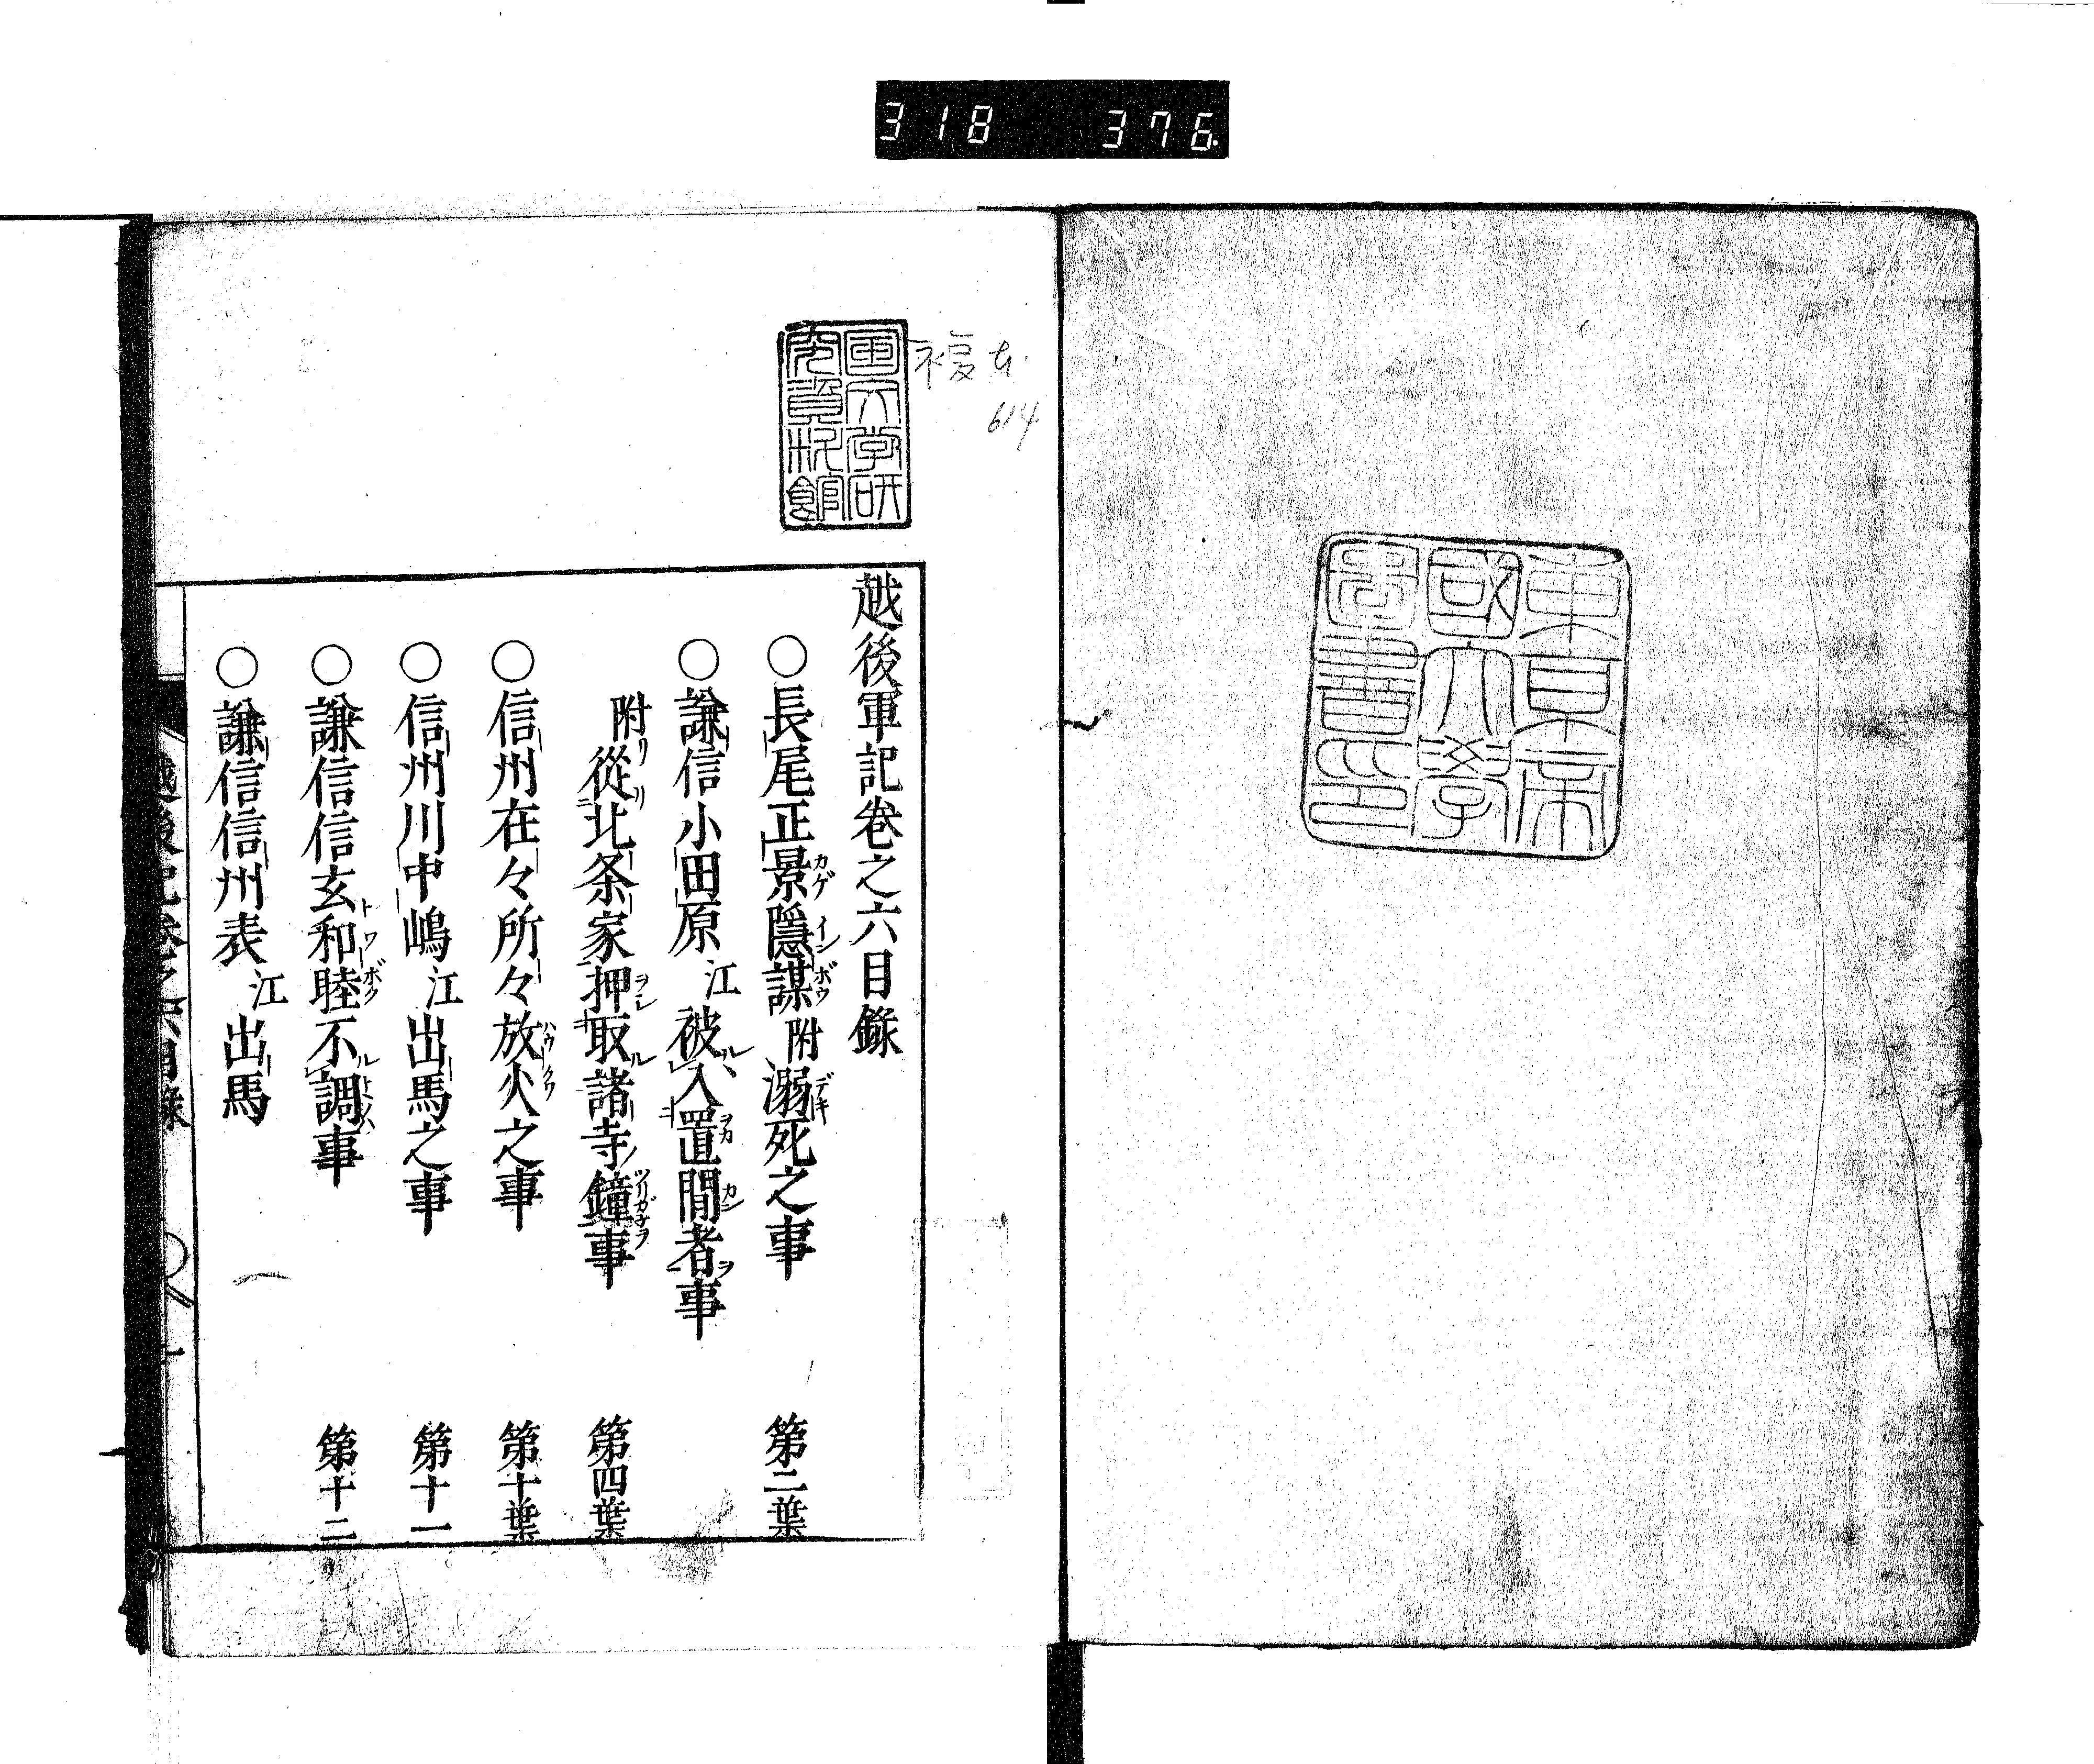 318 376
東京帝
国大學
圖書印
国文学研
究資料館
複本
614
越後軍記巻之六目録
○長尾正景隠謀附溺死之事 第二葉
○謙信小田原江被入置間者事
附從北条家押取諸寺鐘事 第四葉
○信州在々所々放火之事 第十葉
○信州川中嶋江出馬之事 第十一
○謙信信玄和睦不調事 第十二
○謙信信州表江出馬
越後記巻之六目録